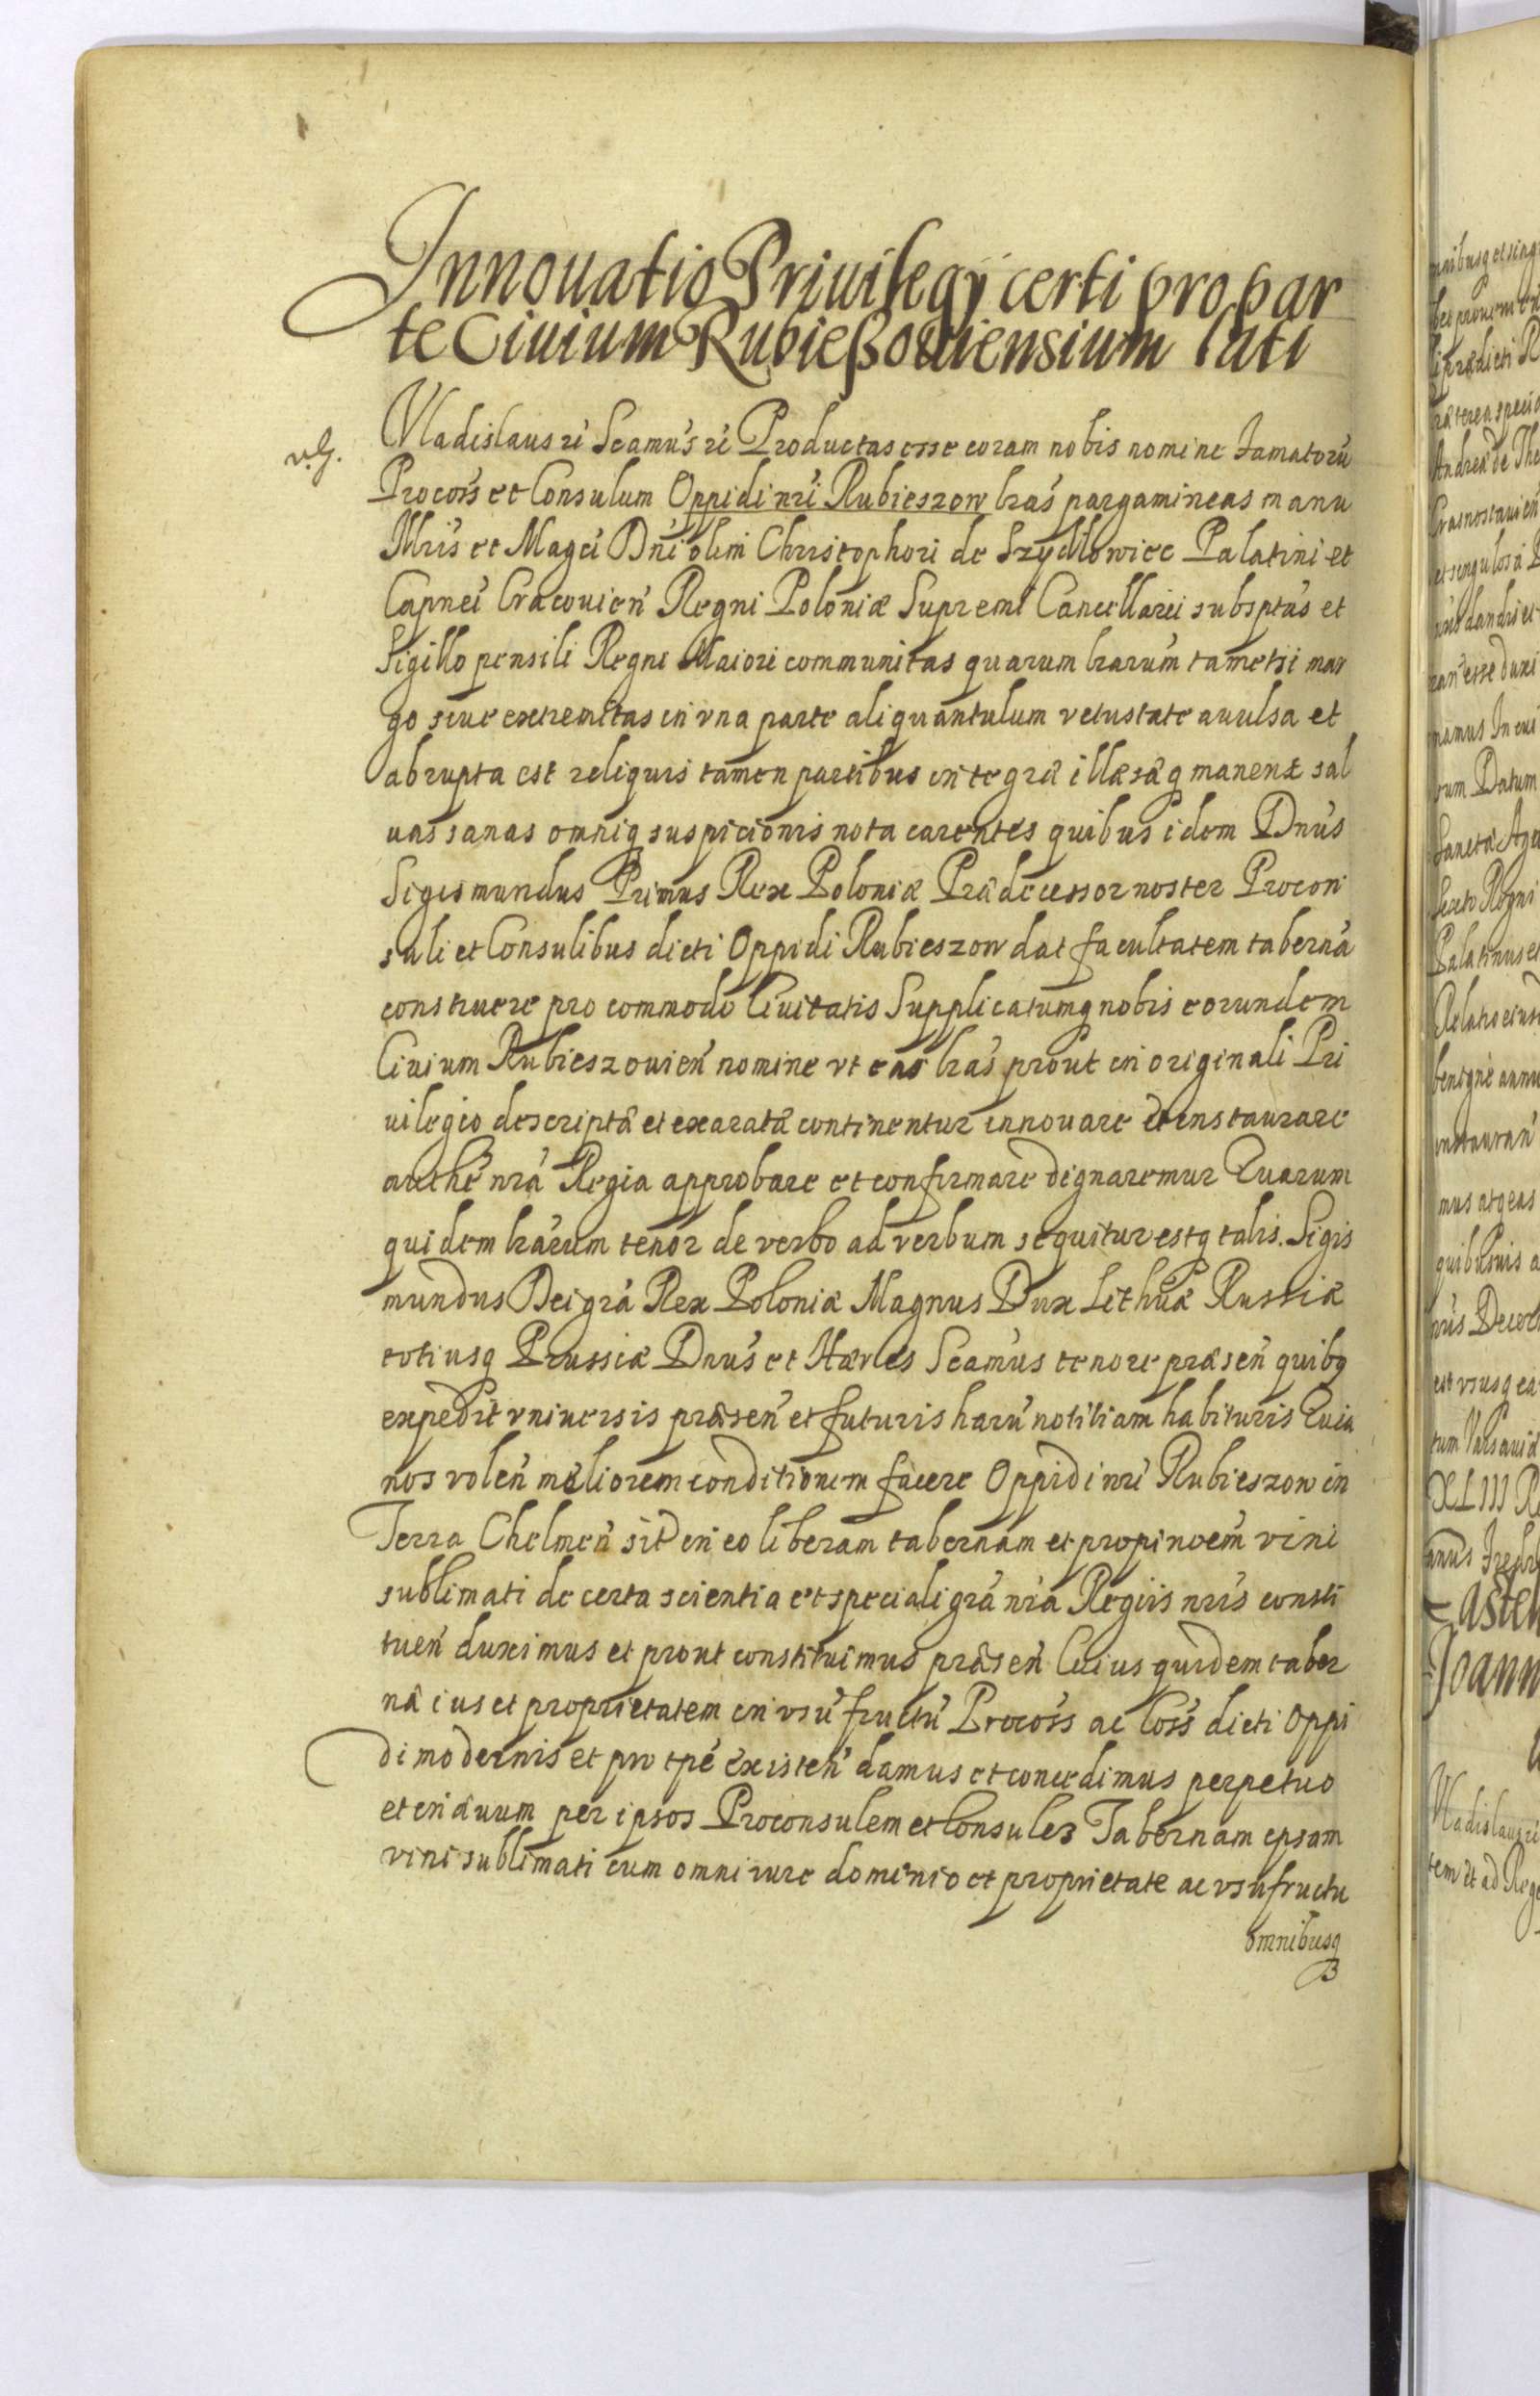 Innouatio Priuilegÿ certi pro par
te Ciuium Rubießouiensium lati
Vladislaus rẽ Scamus rẽ Productas esse coram nobis nomine famatorũ
Procoñs et Consulum Oppidi nrĩ Rubieszow lrãs pargamineas manu
Mrĩs et Magcĩ Dnĩ olim Christophori de Szydlowiec Palatini et
Capnei Cracouień Regni Poloniæ Supremi Cancellarii subsptas et
Sigillo pensili Regni Maiori communitas quarum lrarum tametsi mar
go siue extremitas in vna parte aliquantulum vetustate auulsa et
abrupta est reliquis tamen partibus integræ illæsæq manent sal
uas sanas omniq suspicionis nota carentes quibus idem Dnũs
Sigismundus Primus Rex Poloniæ Prædecessor noster Procon
suli et Consulibus dicti Oppidi Rubieszow dat facultatem tabernã
construere pro commodo Ciuitatis Supplicatumq nobis eorundem
Ciuium Rubieszouień nomine vt eas lrãs prout in originali Pri
uilegio descriptæ et exaratæ continentur innouare et instaurare
authẽ nrã Regia approbare et confirmare dignaremur Quarum
quidem lrarum tenor de verbo ad verbum sequitur estq talis. Sigis
mundus Dei grã Rex Poloniæ Magnus Dux Lithuæ Russiæ
totiusq Prussiæ Dnũs et Hæres Scamus tenore præseñ quibq
expedit vniuersis præseñ et futuris harũ notitiam habituris Quia
nos voleñ meliorem conditionem facere Oppidi nrĩ Rubieszow in
Terra Chelmeñ sit in eo liberam tabernam et propinoẽm vini
sublimati de certa scientia et speciali grã nrã Regiis nrĩs consti
tueñ duximus et prout constituimus præseñ Cuius quidem taber
næ ius et proprietatem in vsũfructũ Procoñs ac Coñs dicti Oppi
di modernis et pro tpẽ existeñ damus et concedimus perpetuo
et in æuum per ipsos Proconsulem et Consules Tabernam ipsam
vini sublimati cum omni iure dominio et proprietate ac vsufructu
omnibusq